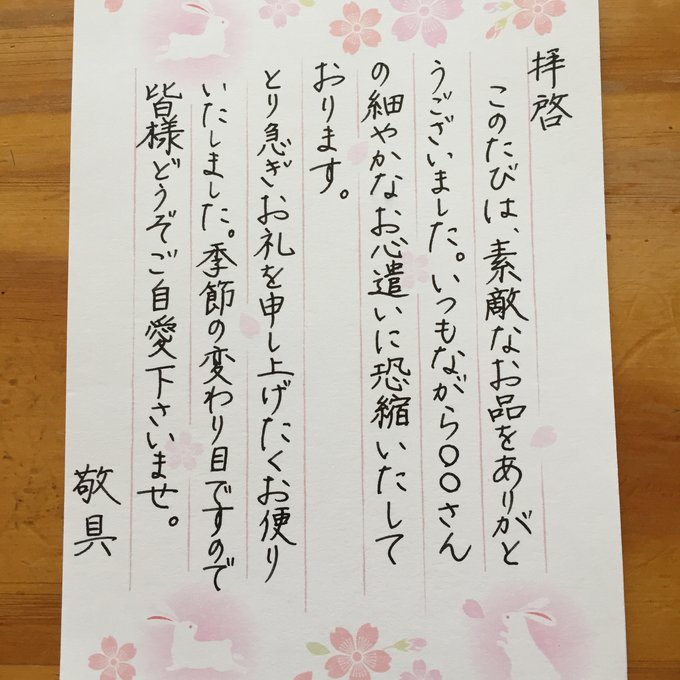 拝啓
このたびは、素敵なお品をありがと
うございました。いつもながら〇〇さん
の細やかなお心遣いに恐縮いたして
おります。
とり急ぎお礼を申し上げたくお便り
いたしました。季節の変わり目ですので
皆様どうぞご自愛下さいませ。
敬具